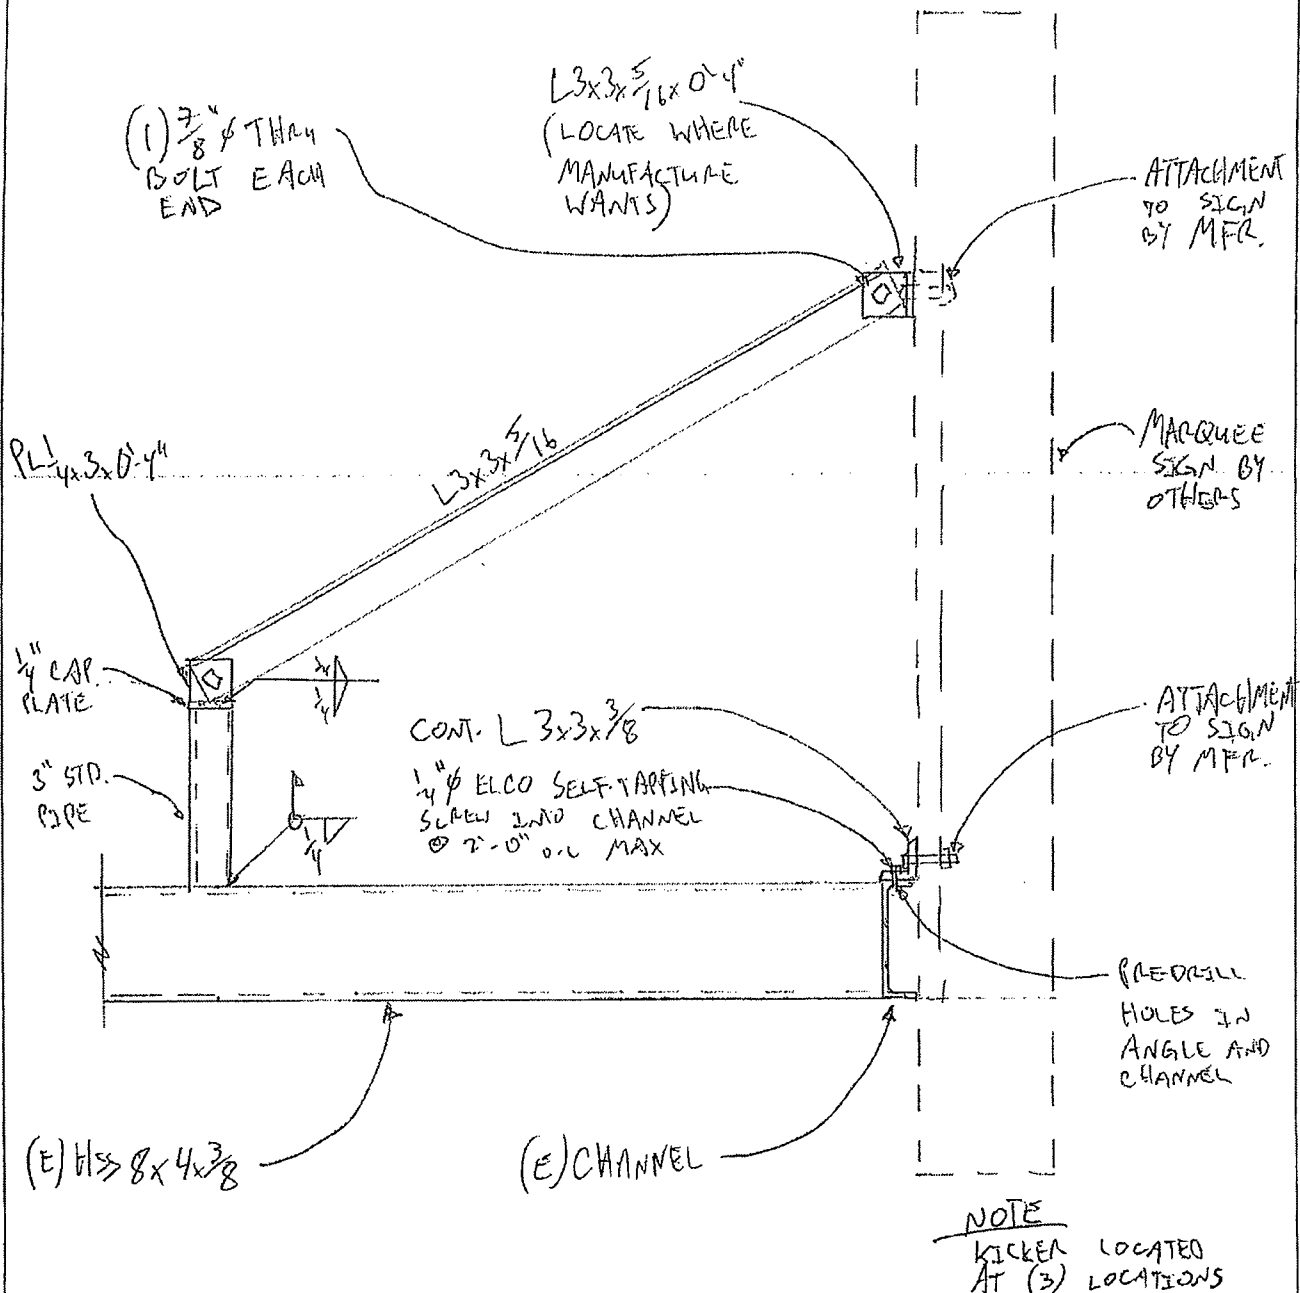 L3x3x5/16x0'-4"
(LOCATE WHERE
MANUFACTURE
WANTS)
(1) 7/8"ϕ THRU
BOLT EACH
END
ATTACHMENT
TO SIGN
BY MFR.
MARQUEE
SIGN BY
OTHERS
L3x3x5/16
PL 1/4x3x0'-4"
1/4" CAP
PLATE
1/4
1/4
3" STD.
PIPE
CONT. L 3x3x3/8
1/4"ϕ ELCO SELF-TAPPING
SCREW INTO CHANNEL
@ 2'-0" o.c MAX
1/4
ATTACHMENT
TO SIGN
BY MFR.
PREDRILL
HOLES IN
ANGLE AND
CHANNEL
(E) HSS 8x4x3/8
(E) CHANNEL
NOTE
KICKER LOCATED
AT (3) LOCATIONS